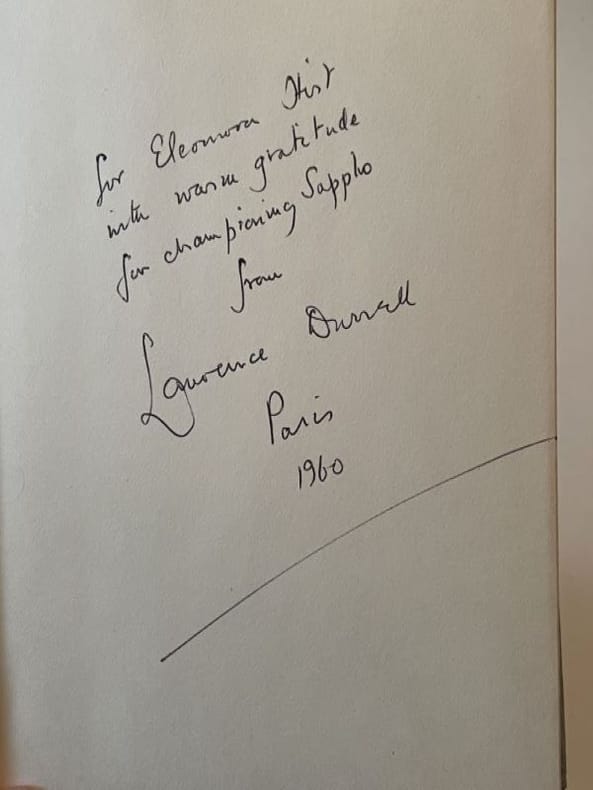 for Eleonora Hirst
with warm gratitude
for championing Sappho
from
Lawrence Durrell
Paris
1960